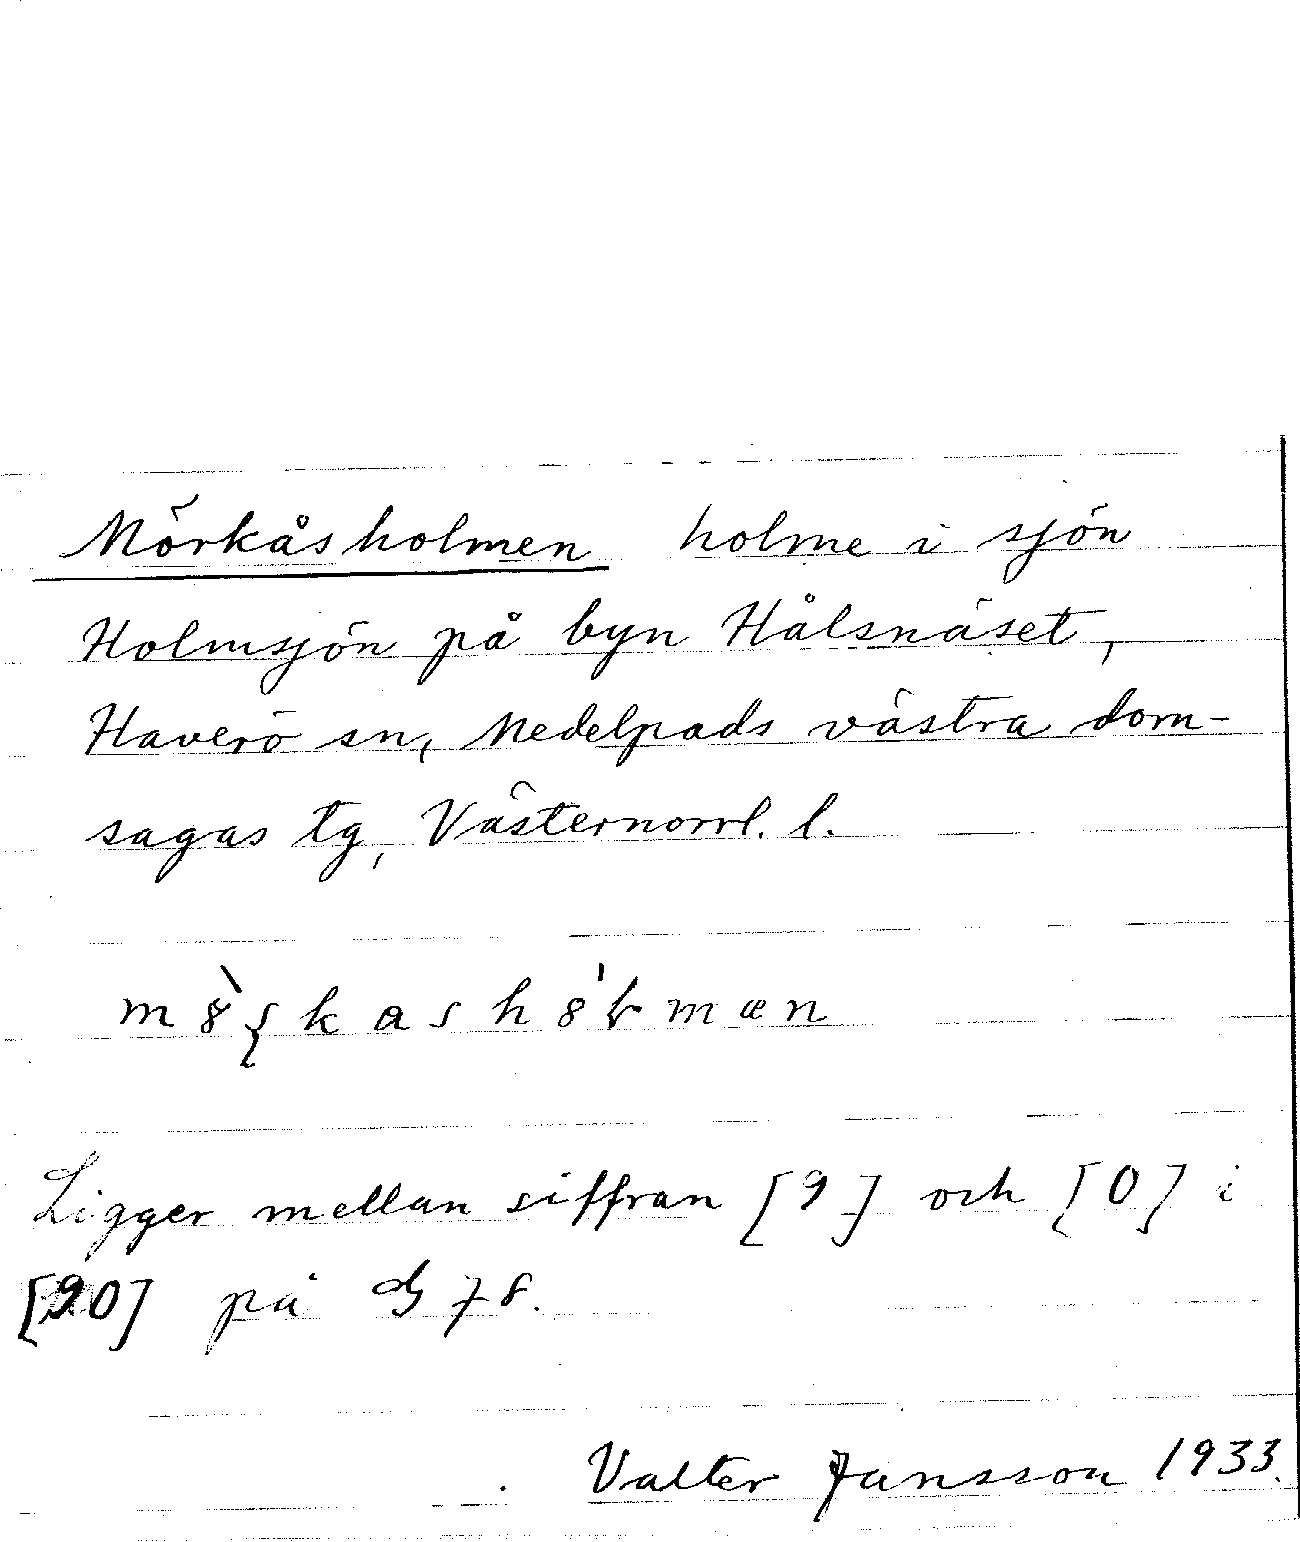 Mörkåsholmen holme i sjön
Holmsjön på byn Hålsnäset,
Haverö sn, Medelpads västra dom-
sagas tg, Västernorrl. l.
Ligger mellan siffran [9] och [0] i
[90] på G 78.
Valter Jansson 1933.